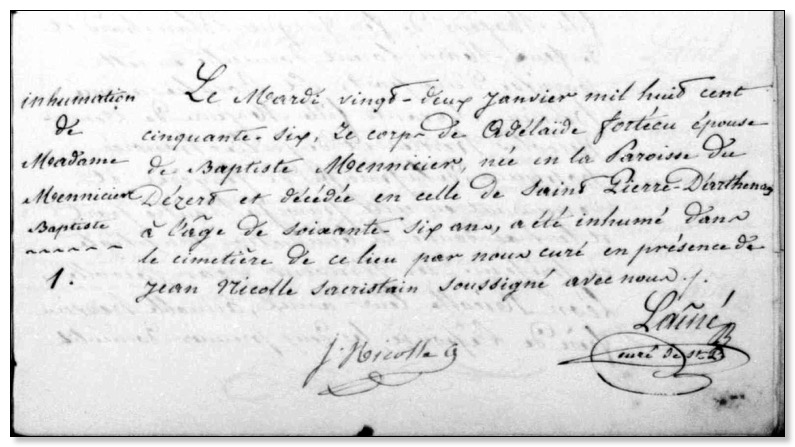 inhumation
de
Madame
Mennicier
Baptiste
1.
Le Mardi vingt-deux janvier mil huit cent
cinquante-six, Le corps de Adélaïde fortécu épouse
de Baptiste Mennicier, née en la Paroisse du
Dézert et décédée en celle de Saint Pierre-D'arthenay
à l'âge de soixante-six ans, a été inhumé dans
le cimetière de ce lieu par nous curé en présence de
jean Nicolle sacristain soussigné avec nous.
j. Nicolle
Lainé
curé de st. P